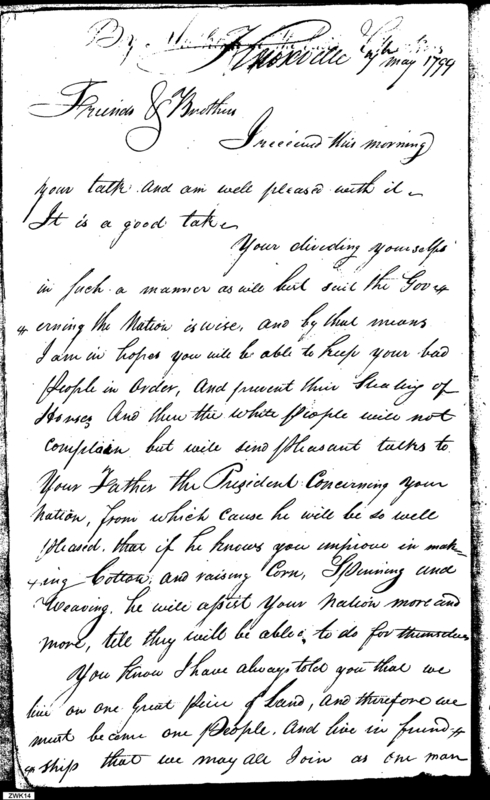 By
Knoxville 7th may 1799
Friends & Brothers
I received this morning
your talk and am well pleased with it
It is a good talk
Your dividing yourselfs
in such a manner as will best suit the Gov
erning the Nation is wise, and by that means
I am in hopes you will be able to keep your bad
People in Order, And prevent their Stealing of
Horses, And then the white People will not
complain but will send pleasant talks to
Your Father the President Concerning your
Nation, from which cause he will be so well
pleased, that if he knows you improve in mak
ing Cotton, and raising Corn, Spinning and
Weaving, he will assist Your Nation more and
more, till they will be able to do for themselves
You know I have always told you that we
live on one Great Peice of Land, and therefore we
must became one People, And live in friend
ship that we may all Join as one man
ZWK14